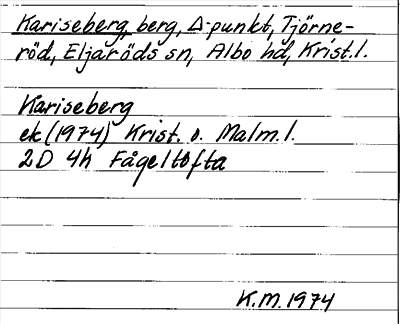 Kariseberg, berg, Δ-punkt, Tjörne-
röd, Eljaröds sn, Albo hd, Krist. l.
Kariseberg
ek (1974) Krist. o. Malm. l.
2D 4h Fågeltofta
K.M. 1974